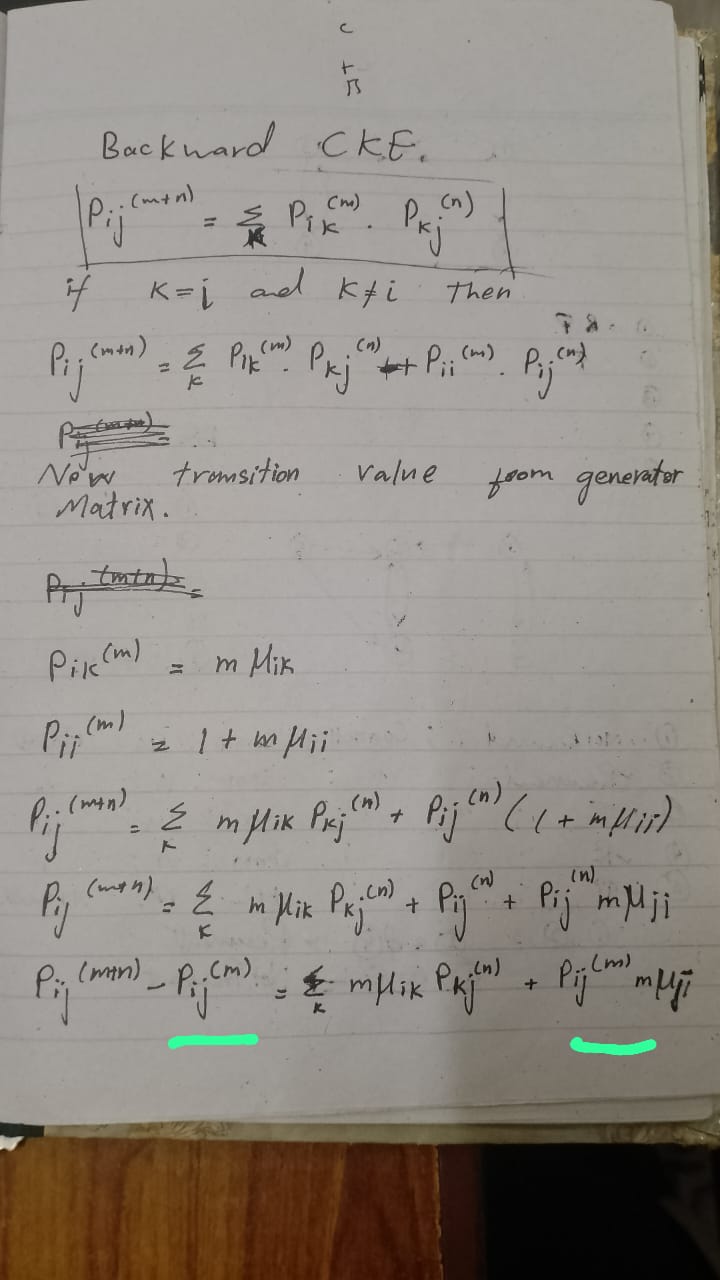 c
+
B
Backward CKE.
Pij^(m+n) = Σ_K Pik^(m) . Pkj^(n)
if K=i and K≠i Then
Pij^(m+n) = Σ_K Pik^(m) . Pkj^(n) + Pii^(m) . Pij^(n)
Pij^(m+n) =
Now tromsition value from generator
Matrix.
Pij^(m+n) =
Pik^(m) = m μik
Pii^(m) = 1 + m μii
Pij^(m+n) = Σ_K m μik Pkj^(n) + Pij^(n) (1 + m μii)
Pij^(m+n) = Σ_K m μik Pkj^(n) + Pij^(n) + Pij^(n) m μjj
Pij^(m+n) - Pij^(m) = Σ_K m μik Pkj^(n) + Pij^(m) m μji